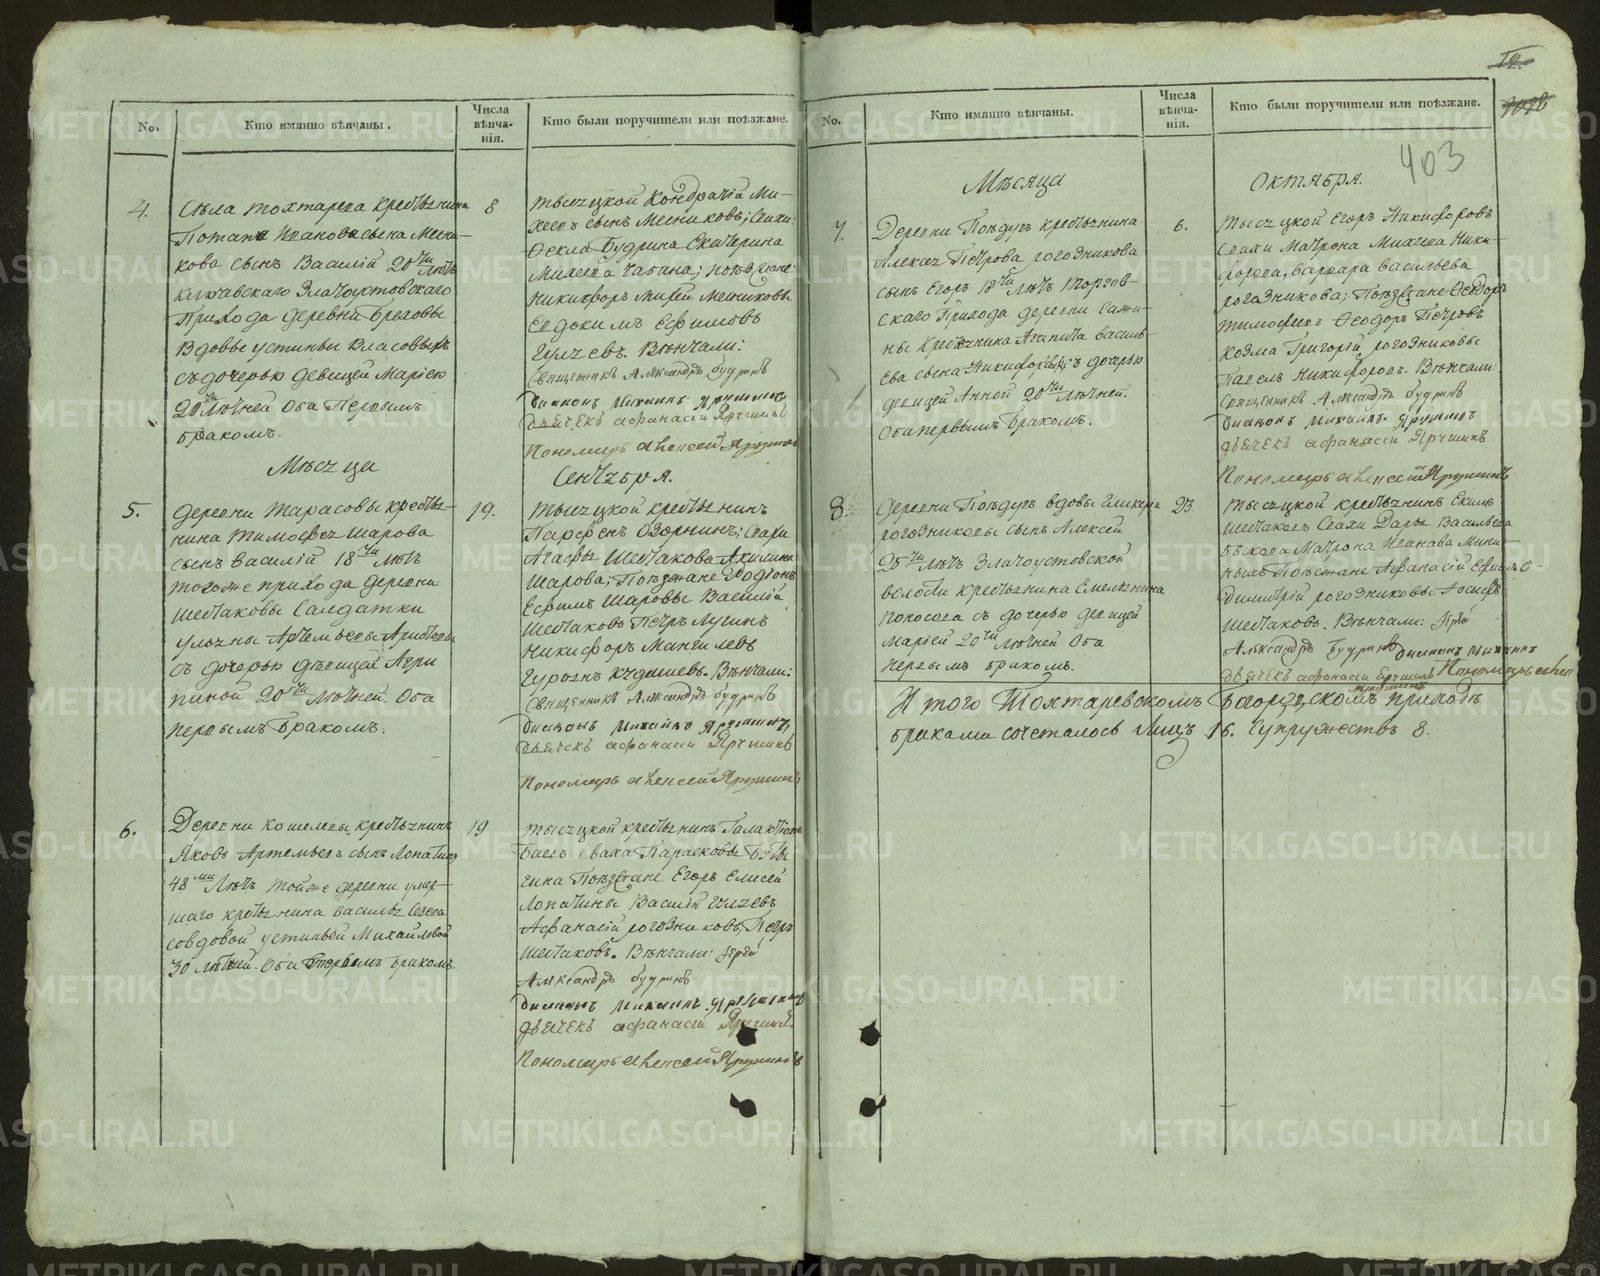 No.
Кто имянно вѣнчаны.
Числа вѣнча-нія.
Кто были поручители или поѣзжане.
4.
Села Тохтарева крестьянина
Потапа Иванова сына Месни-
кова сынъ Василій 20ти лѣтъ
Ключевскаго Златоустовскаго
Прихода деревни Бреховы
Вдовы Устиньи Власовыхъ
съ дочерью девицей Маріею
20ти лѣтней Оба Первымъ
бракомъ.
8
Тысяцкой Кондратій Ми-
хеевъ сынъ Месниковъ; Свахи:
Фекла Будрина Екатерина
Михеева
Никифоръ Михей Месниковы
Евдокимъ Ефимовъ
Гуляевъ. Вѣнчали:
Священникъ Александръ Будринъ
Диаконъ Михаилъ Ярушинъ
Дьячекъ Афанасій Яручинъ
Пономарь Алексей Ярушинъ
Мѣсяца
Сентября.
5.
Деревни Тарасовы крестья-
нина Тимофея Шарова
сынъ Василій 18ти лѣтъ
тогоже прихода деревни
Шестаковы Салдатки
Ульяны Артемьевы
съ дочерью дѣвицей Агри
пиной 20ти лѣтней. Оба
первымъ бракомъ.
19.
Тысяцкой крестьянинъ
Парфенъ Озорнинъ; Свахи
Агафья Шестакова Акилина
Шарова; Поѣзжане Родіонъ
Ефимъ Шаровы Василій
Шестаковъ Петръ Лугинъ
Никифоръ Мангилевъ
Вѣнчали:
Священникъ Александръ Будринъ
Диаконъ Михаилъ Ярушинъ
Дьячекъ Афанасій Яручинъ
Пономарь Алексей Ярушинъ
6.
Деревни Кошелевы крестьянинъ
Яковъ Артемьевъ сынъ Лопатинъ
48ми лѣтъ тойже деревни умер-
шаго крестьянина Василья
со вдовой Устиньей Михайловой
30 лѣтней. Оба бракомъ.
19
Тысяцкой крестьянинъ Галактіонъ
сваха Парасковья
Поѣзжане Егоръ Елисей
Лопатины Василій Гуляевъ
Афанасій Рогозниковъ, Петръ
Шестаковъ. Вѣнчали: Іерей
Александръ Будринъ
Диаконъ Михаилъ Ярушинъ
Дьячекъ Афанасій Яручинъ
Пономарь Алексей Ярушинъ
403
No.
Кто имянно вѣнчаны.
Числа вѣнча-нія.
Кто были поручители или поѣзжане.
Мѣсяца
Октября.
7.
Деревни Поѣдугъ крестьянина
Алексея Петрова Рогозникова
сынъ Егоръ 18ти лѣтъ Торгов-
скаго Прихода деревни Сажи-
ны Крестьянина Агапита Василь-
ева сына съ дочерью
девицей Анной 20ти лѣтней.
Оба первымъ бракомъ.
6.
Тысяцкой Егоръ Никифоровъ
Свахи Матрона Михеева Ники-
форова, Варвара Васильева
Рогозникова; Поѣзжане Феодоръ
Тимофеевъ Феодоръ Петровъ
Козма Григорій Рогозниковы
Павелъ Никифоровъ. Вѣнчали:
Священникъ Александръ Будринъ
Диаконъ Михаилъ Ярушинъ
Дьячекъ Афанасій Яручинъ
Пономарь Алексей Ярушинъ
8.
Деревни Поѣдугъ вдовы Гликерьи
Рогозниковы сынъ Алексей
25ти лѣтъ Златоустовской
волости Крестьянина Емельянина
Поносова съ дочерью девицей
Маріей 20ти лѣтней Оба
первымъ бракомъ.
23
Тысяцкой крестьянинъ Екимъ
Шестаковъ Свахи Дарья Васильева
Быкова Матрона Иванова Мини-
ныхъ Поѣзжане Афанасій
Димитрій Рогозниковы Іосифъ
Шестаковъ. Вѣнчали: Іерей
Александръ Будринъ Диаконъ Михаилъ
Дьячекъ Афанасій Яручинъ Пономарь Алексей
Итого Тохтаревскомъ Богородскомъ приходѣ
браками сочеталось лицъ 16. Супружествъ 8.
METRIKI.GASO-URAL.RU